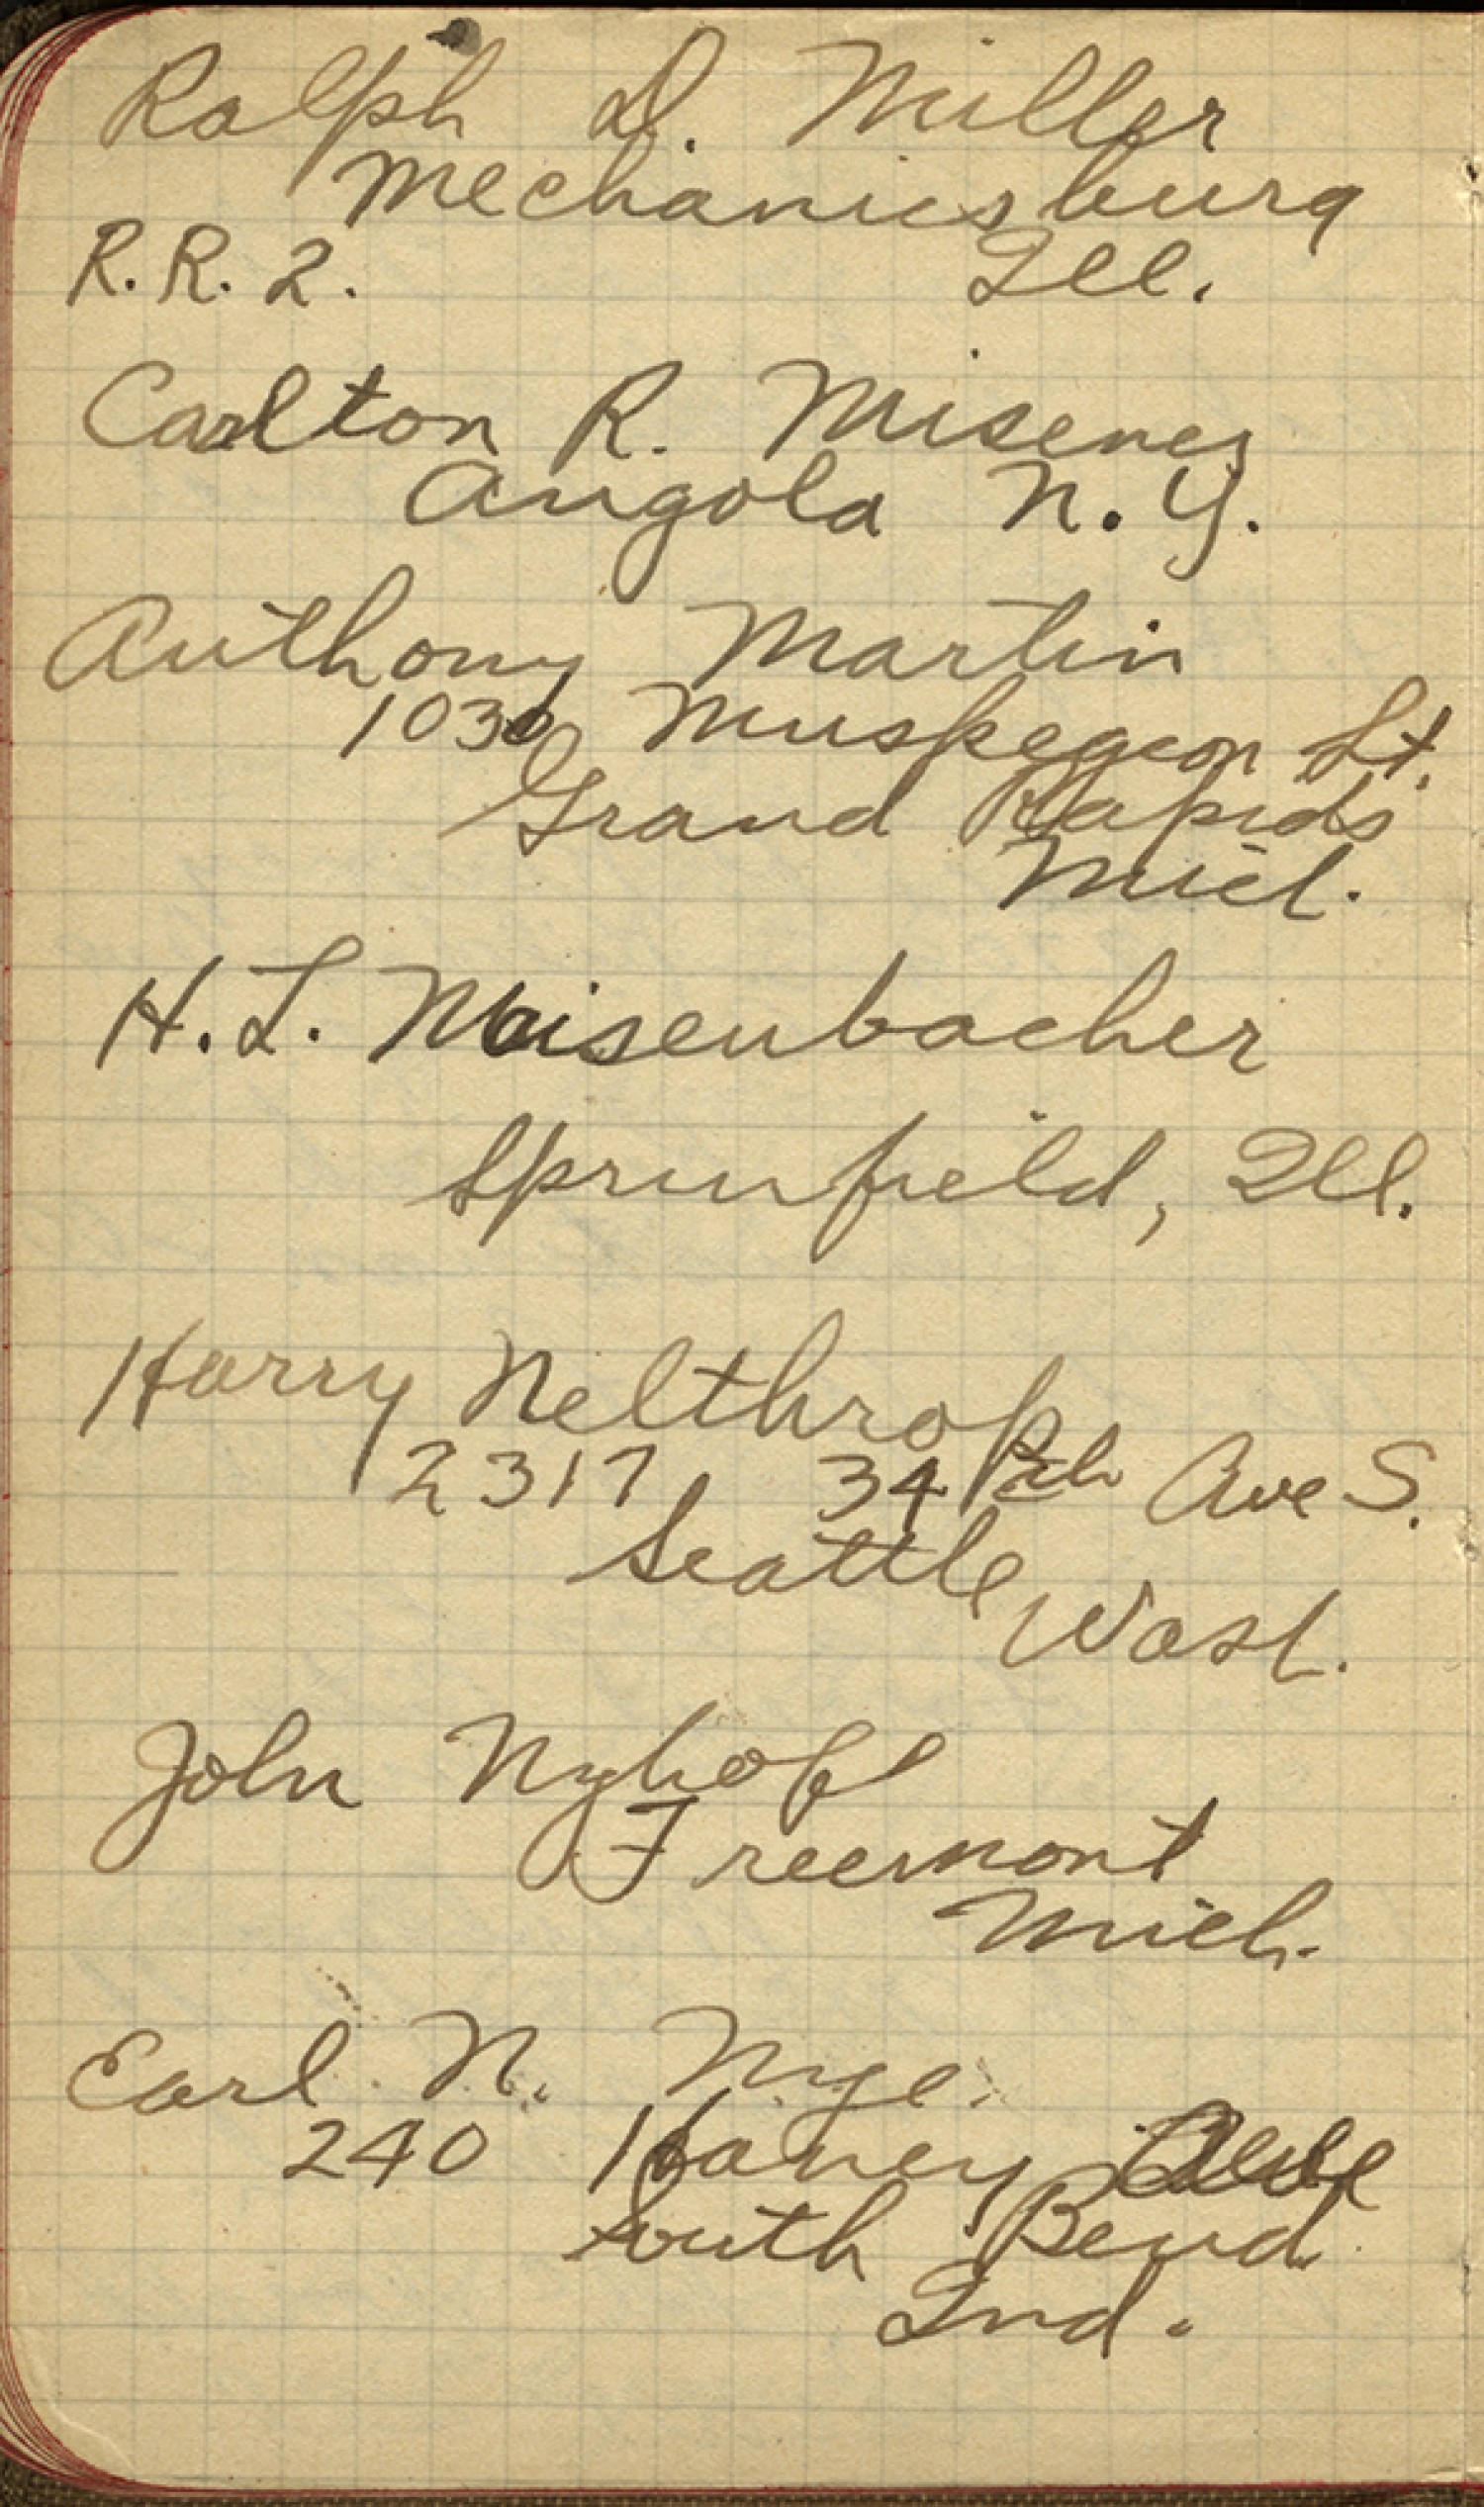 Ralph D. Miller
Mechanicsburg
R.R. 2. Ill.
Carlton R. Misener
Angola N.Y.
Anthony Martin
1030 Muskegeon St.
Grand Rapids
Mich.
H.L. Meisenbacher
Sprinfield, Ill.
Harry Nelthrop
2317 34th Ave S.
Seattle
Wash.
John Nyhof
Freemont
Mich.
Earl N. Nye.
240 Haney Ave
South Bend
Ind.